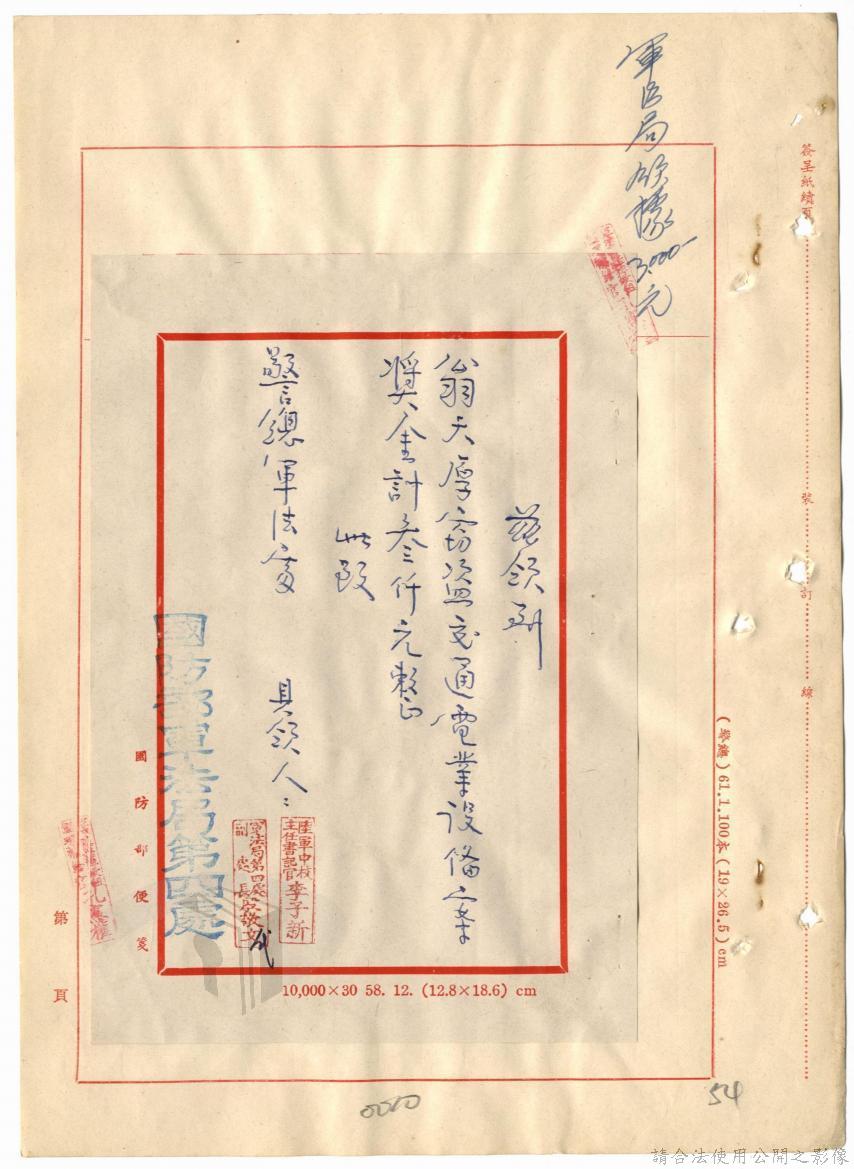 軍法局領據3,000—元
簽呈紙續頁
裝
訂
線
(警總)61.1.100本(19×26.5)cm
茲領到
翁天厚竊盜交通電業設備案
獎金計叁仟元整
此致
警總軍法處
具領人:
陸軍中校
主任書記官 李子新
軍法局第四處
副處長
代
國防部軍法局第四處
國防部便箋
10,000×30 58. 12. (12.8×18.6) cm
第 頁
54
請合法使用公開之影像